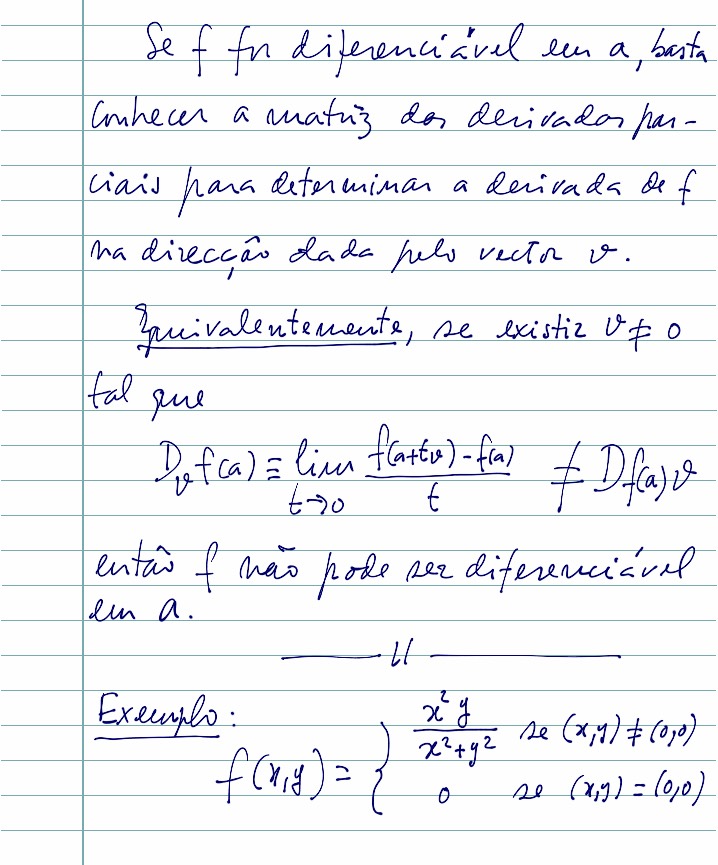 Se f for diferenciável em a, basta
conhecer a matriz das derivadas par-
ciais para determinar a derivada de f
na direcção dada pelo vector v.
Equivalentemente, se existir v ≠ 0
tal que
D_v f(a) ≡ lim_{t→0} (f(a+tv) - f(a))/t ≠ Df(a)v
então f não pode ser diferenciável
em a.
—— // ——
Exemplo:
f(x,y) = { x²y/(x²+y²) se (x,y) ≠ (0,0)
0 se (x,y) = (0,0)